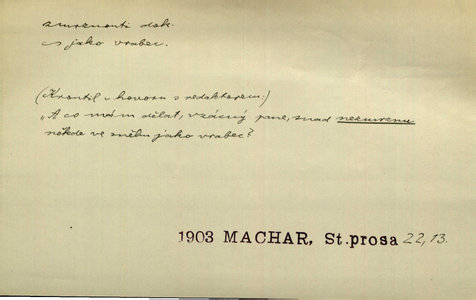 zmrznouti dok.
~ jako vrabec.
(Krantil v hovoru s redaktorem:)
„A co mám dělat, vzácný pane, snad nezmrznu
někde ve sněhu jako vrabec?
1903 MACHAR, St.prosa 22,13.